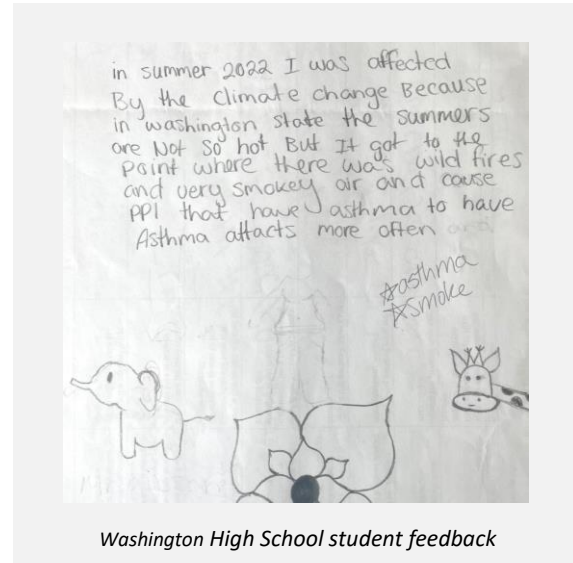 in summer 2022 I was affected
By the Climate change Because
in washington, state the summers
are Not So hot But It got to the
Point where there was wild fires
and very smokey air and cause
PPl that have asthma to have
Asthma attacts more often
☆asthma
☆smoke
Washington High School student feedback